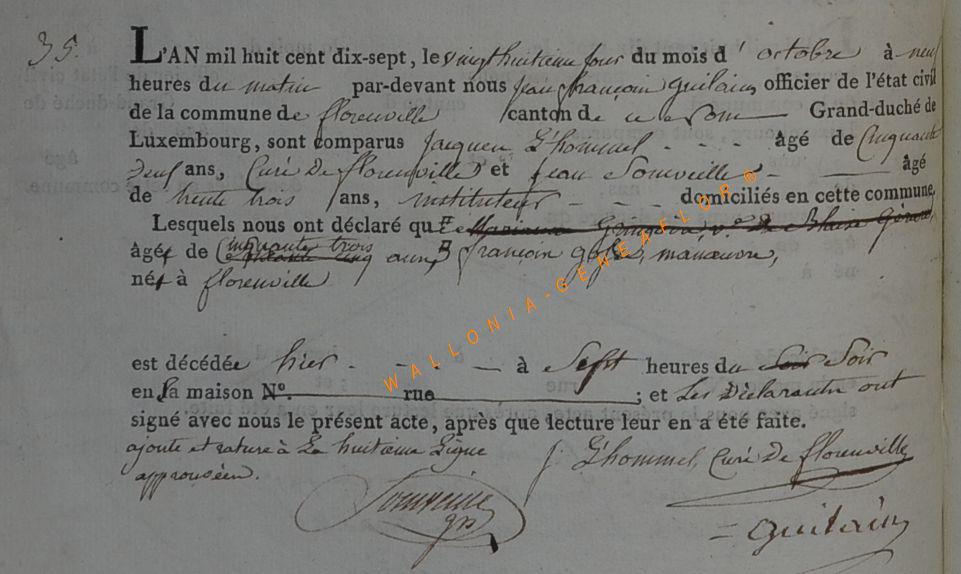 35.
L'AN mil huit cent dix-sept, le vingt huitieme jour du mois d' octobre à neuf
heures du matin par-devant nous jean françois guilain officier de l'état civil
de la commune de florenville canton de Grand-duché de
Luxembourg, sont comparus jacques L'hommel âgé de Cinquante
neuf ans, Curé De florenville et jean Somville âgé
de trente trois ans, instituteur domiciliés en cette commune,
Lesquels nous ont déclaré que Marianne v.e De Blaise
âgé de Cinquante trois ans, françois manœuvre,
né à florenville
est décédée hier à Sept heures du Soir Soir
en sa maison N.o rue ; et Les Déclarants ont
signé avec nous le présent acte, après que lecture leur en a été faite.
ajoute et rature à La huitieme Ligne J. L'hommel, Curé De florenville
approuvéen.
Somville
guilain
WALLONIA-GENEAFLOR®